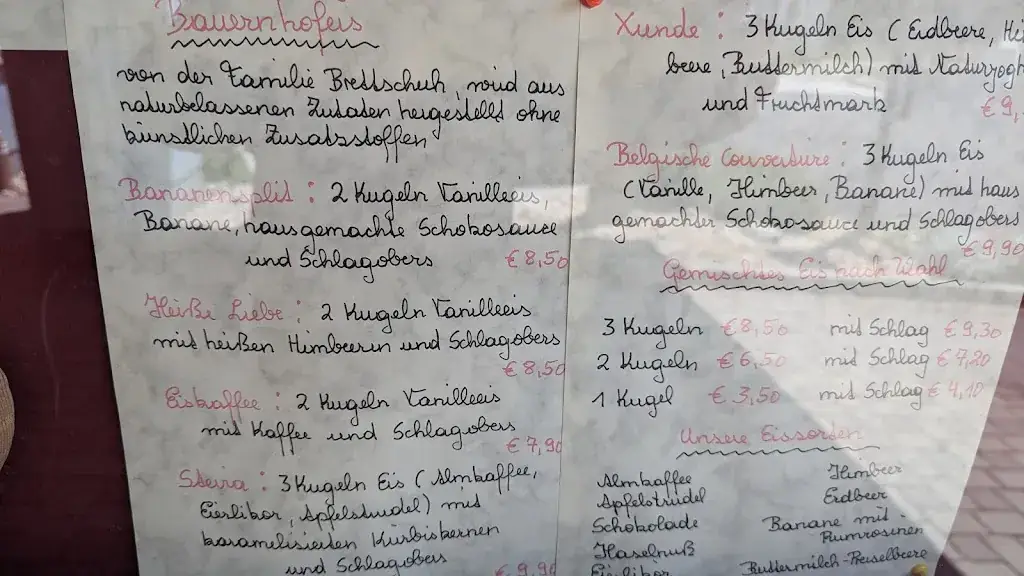 Bauernhofeis
von der Familie Brettschuh, wird aus
naturbelassenen Zutaten hergestellt ohne
künstlichen Zusatzstoffen
Bananensplit: 2 Kugeln Vanilleeis,
Banane, hausgemachte Schokosauce
und Schlagobers € 8,50
Heiße Liebe: 2 Kugeln Vanilleeis
mit heißen Himbeeren und Schlagobers
€ 8,50
Eiskaffee: 2 Kugeln Vanilleeis
mit Kaffee und Schlagobers
€ 7,90
Steira: 3 Kugeln Eis (Almkaffee,
Eierlikör, Apfelstrudel) mit
karamelisierten Kürbiskernen
und Schlagobers
€ 9,90
Xunde: 3 Kugeln Eis (Erdbeere,
beere, Buttermilch) mit
und Fruchtmark
€ 9,
Belgische Couverture: 3 Kugeln Eis
(Vanille, Himbeer, Banane) mit haus
gemachter Schokosauce und Schlagobers
€ 9,90
Gemischtes Eis nach Wahl
3 Kugeln € 8,50 mit Schlag € 9,30
2 Kugeln € 6,50 mit Schlag € 7,20
1 Kugel € 3,50 mit Schlag € 4,10
Unsere Eissorten
Almkaffee
Apfelstrudel
Schokolade
Haselnuß
Eierlikör
Himbeer
Erdbeer
Banane mit
Rumrosinen
Buttermilch-Preiselbeere